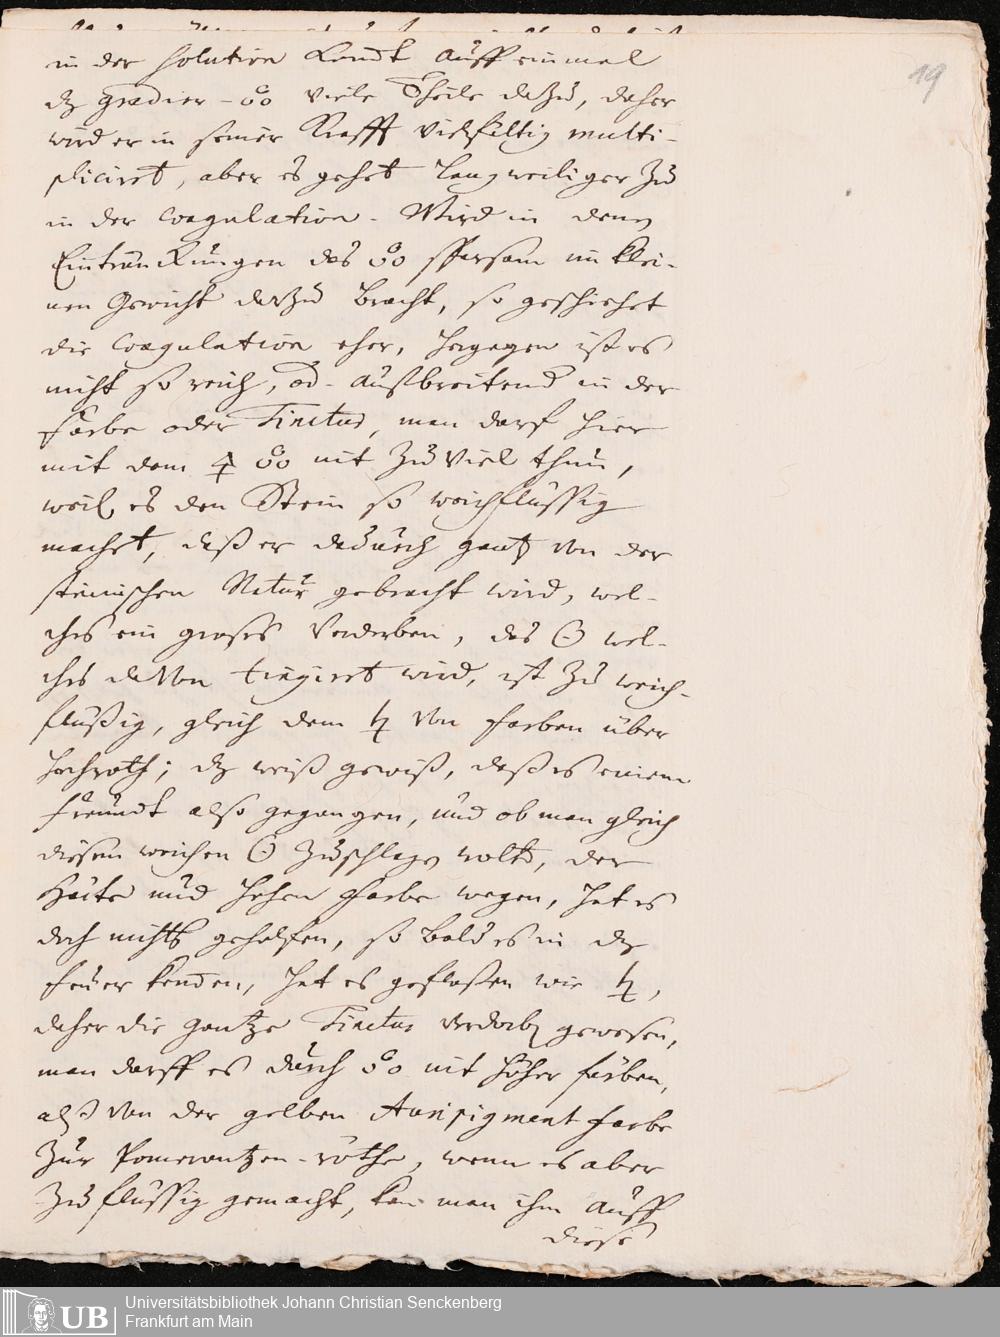 19
in der Solution kombt auff einmal
dz gradier-🜆 viele Theile dazu, daher
wird er in seiner Krafft vielfältig multi-
pliciret, aber es gehet langweiliger zu
in der Coagulation. Wird in denen
Einträncküngen das oo sparsam im klei-
nen Gewicht darzu bracht, so geschiehet
die Coagulation eher, hergegen ist es
nicht so reich, od. außbreitend in der
Farbe oder Tinctur, man darf hier
mit dem 🜍 oo nit zu viel thun,
weil es den Stein so weichflüssig
machet, daß er dadurch gantz von der
steinischen Natur gebracht wird, wel-
ches ein groses Verderben, das ☉ wel-
ches davon tingiret wird, ist zu weich-
flüßig, gleich dem ♄ von farben über
hochroth; dz weiß gewiß, daß es einem
Freundt also gegangen, und ob man gleich
diesen weichen ☉ zuschlagen wolte, der
Härte und hohen Farbe wegen, hat es
doch nichts geholfen, so bald es in dz
feuer kommen, hat es gefloßen wie ♄,
daher die gantze Tinctur verdorben gewesen,
man darff es durch oo nit höher färben,
alß von der gelben Auripigment farbe
zur Pomerantzen-röthe, wenn es aber
zu flüssig gemacht, kan man ihm auff
diese
UB
Universitätsbibliothek Johann Christian Senckenberg
Frankfurt am Main